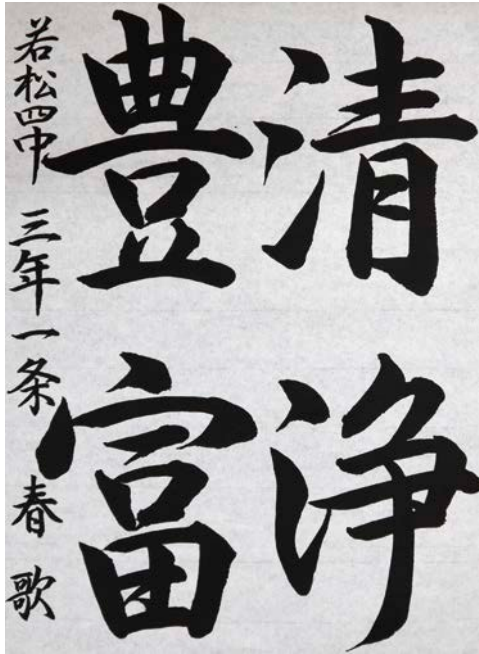 清浄
豊富
若松四中 三年 一条 春歌